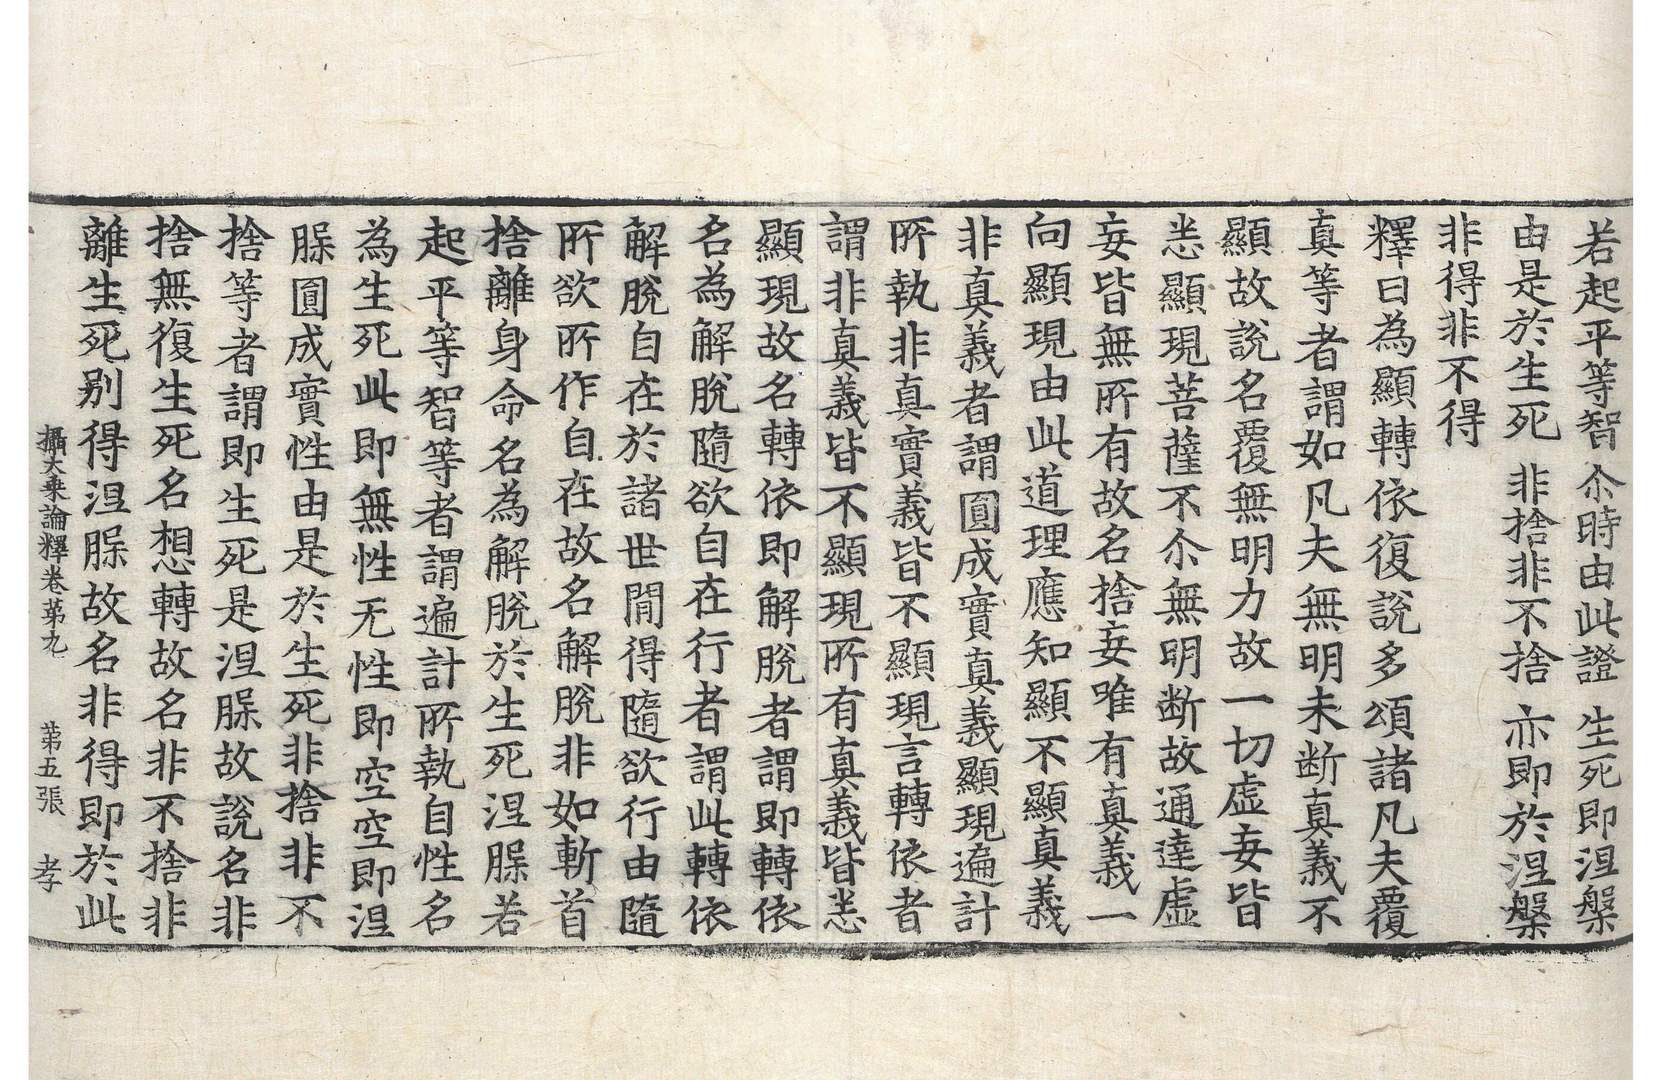 若起平等智　尒時由此證　生死即涅槃
由是於生死　非捨非不捨　亦即於涅槃
非得非不得
釋曰為顯轉依復說多頌諸凡夫覆
真等者謂如凡夫無明未断真義不
顯故說名覆無明力故一切虛妄皆
悉顯現菩薩不尒無明断故通達虛
妄皆無所有故名捨妄唯有真義一
向顯現由此道理應知顯不顯真義
非真義者謂圓成實真義顯現遍計
所執非真實義皆不顯現言轉依者
謂非真義皆不顯現所有真義皆悉
顯現故名轉依即解脫者謂即轉依
名為解脫隨欲自在行者謂此轉依
解脫自在於諸世間得隨欲行由隨
所欲所作自在故名解脫非如斬首
捨離身命名為解脫於生死涅槃若
起平等智等者謂遍計所執自性名
為生死此即無性无性即空空即涅
槃圓成實性由是於生死非捨非不
捨等者謂即生死是涅槃故說名非
捨無復生死名想轉故名非不捨非
離生死別得涅槃故名非得即於此
攝大乗論釋卷第九　第五張　孝